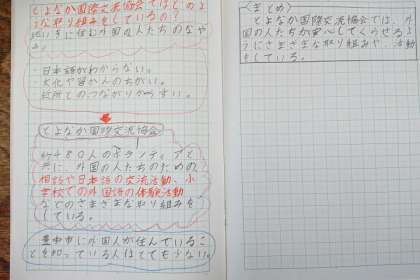 とよなか国際交流協会ではどのよ
うな取り組みをしているの?
地いきに住む外国の人たちのなや
み。
・日本語がわからない。
・文化や習かんのちがい。
とよなか国際交流協会
約480人のボランティアと
共に、外国の人たちのための
相談や日本語の交流活動、小
学校での外国語の体験活動
などのさまざまな取り組みを
している。
豊中市に外国人が住んでいるこ
とを知っている人はとても少ない。
〈まとめ〉
とよなか国際交流協会では、外
国の人たちが安心してくらせるよ
うにさまざまな取り組みや、活動
をしている。